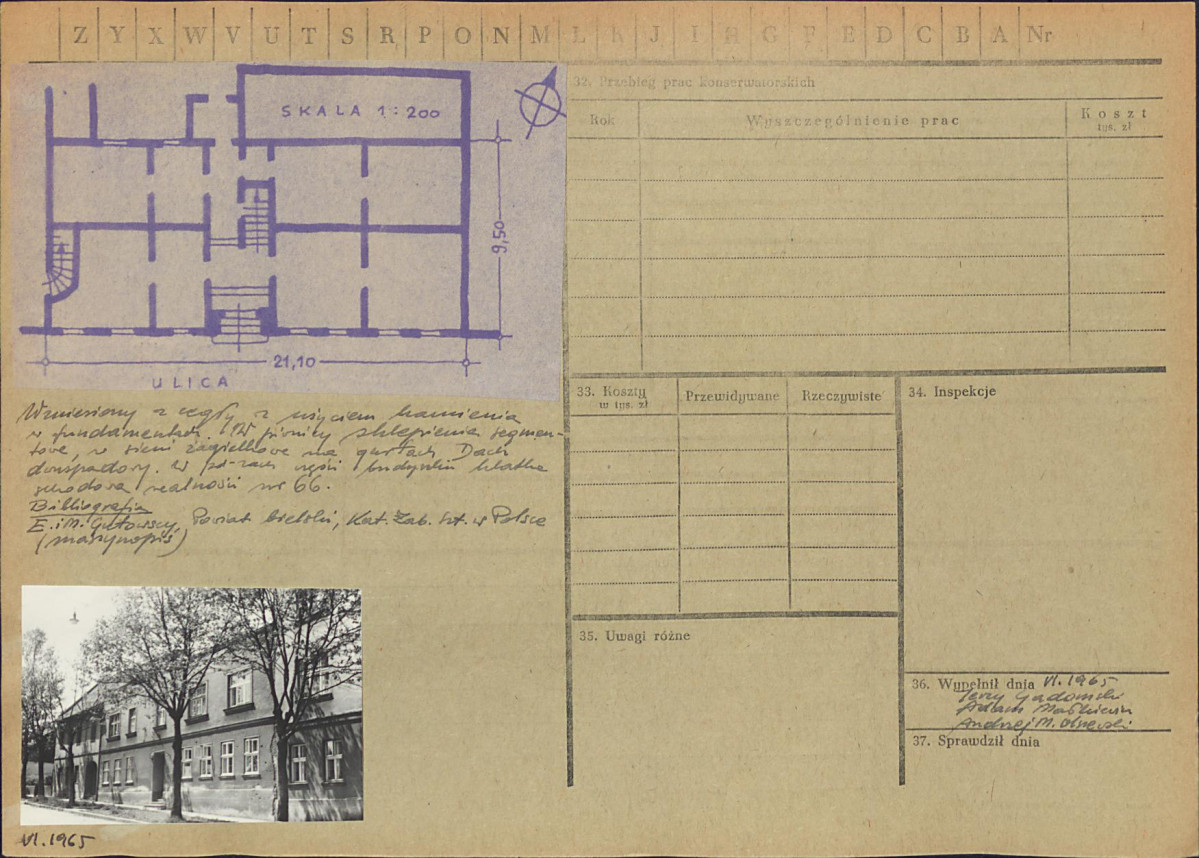 Z Y X W V U T S R P O N M L K J I H G F E D C B A Nr
SKALA 1:200
9,50
21,10
ULICA
Wzniesiony z cegły z użyciem kamienia
w fundamentach. W piwnicy sklepienia segmen-
towe, w sieni żagielkowe na gurtach. Dach
dwuspadowy. W części budynku klatka
schodowa realności nr 66.
Bibliografia
E. i M. Gutowscy, Powiat bielski, Kat. Zab. Szt. w Polsce
(maszynopis)
VI.1965
32. Przebieg prac konserwatorskich
Rok
Wyszczególnienie prac
Koszt
tys. zł
33. Koszty
w tys. zł
Przewidywane
Rzeczywiste
34. Inspekcje
35. Uwagi różne
36. Wypełnił dnia VI.1965
Jerzy Gadomski
Adam
Andrzej M.
37. Sprawdził dnia